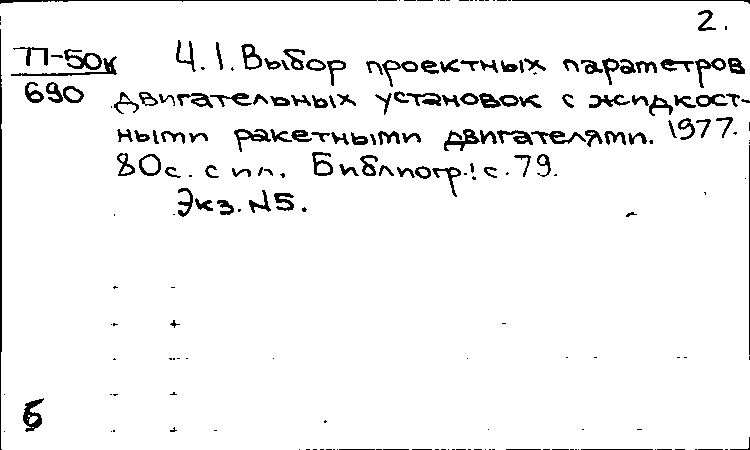 2.
П-50к Ч.1. Выбор проектных параметров
690 двигательных установок с жидкост-
ными ракетными двигателями. 1977.
80с. с ил. Библиогр.: с. 79.
Экз. №5.
б